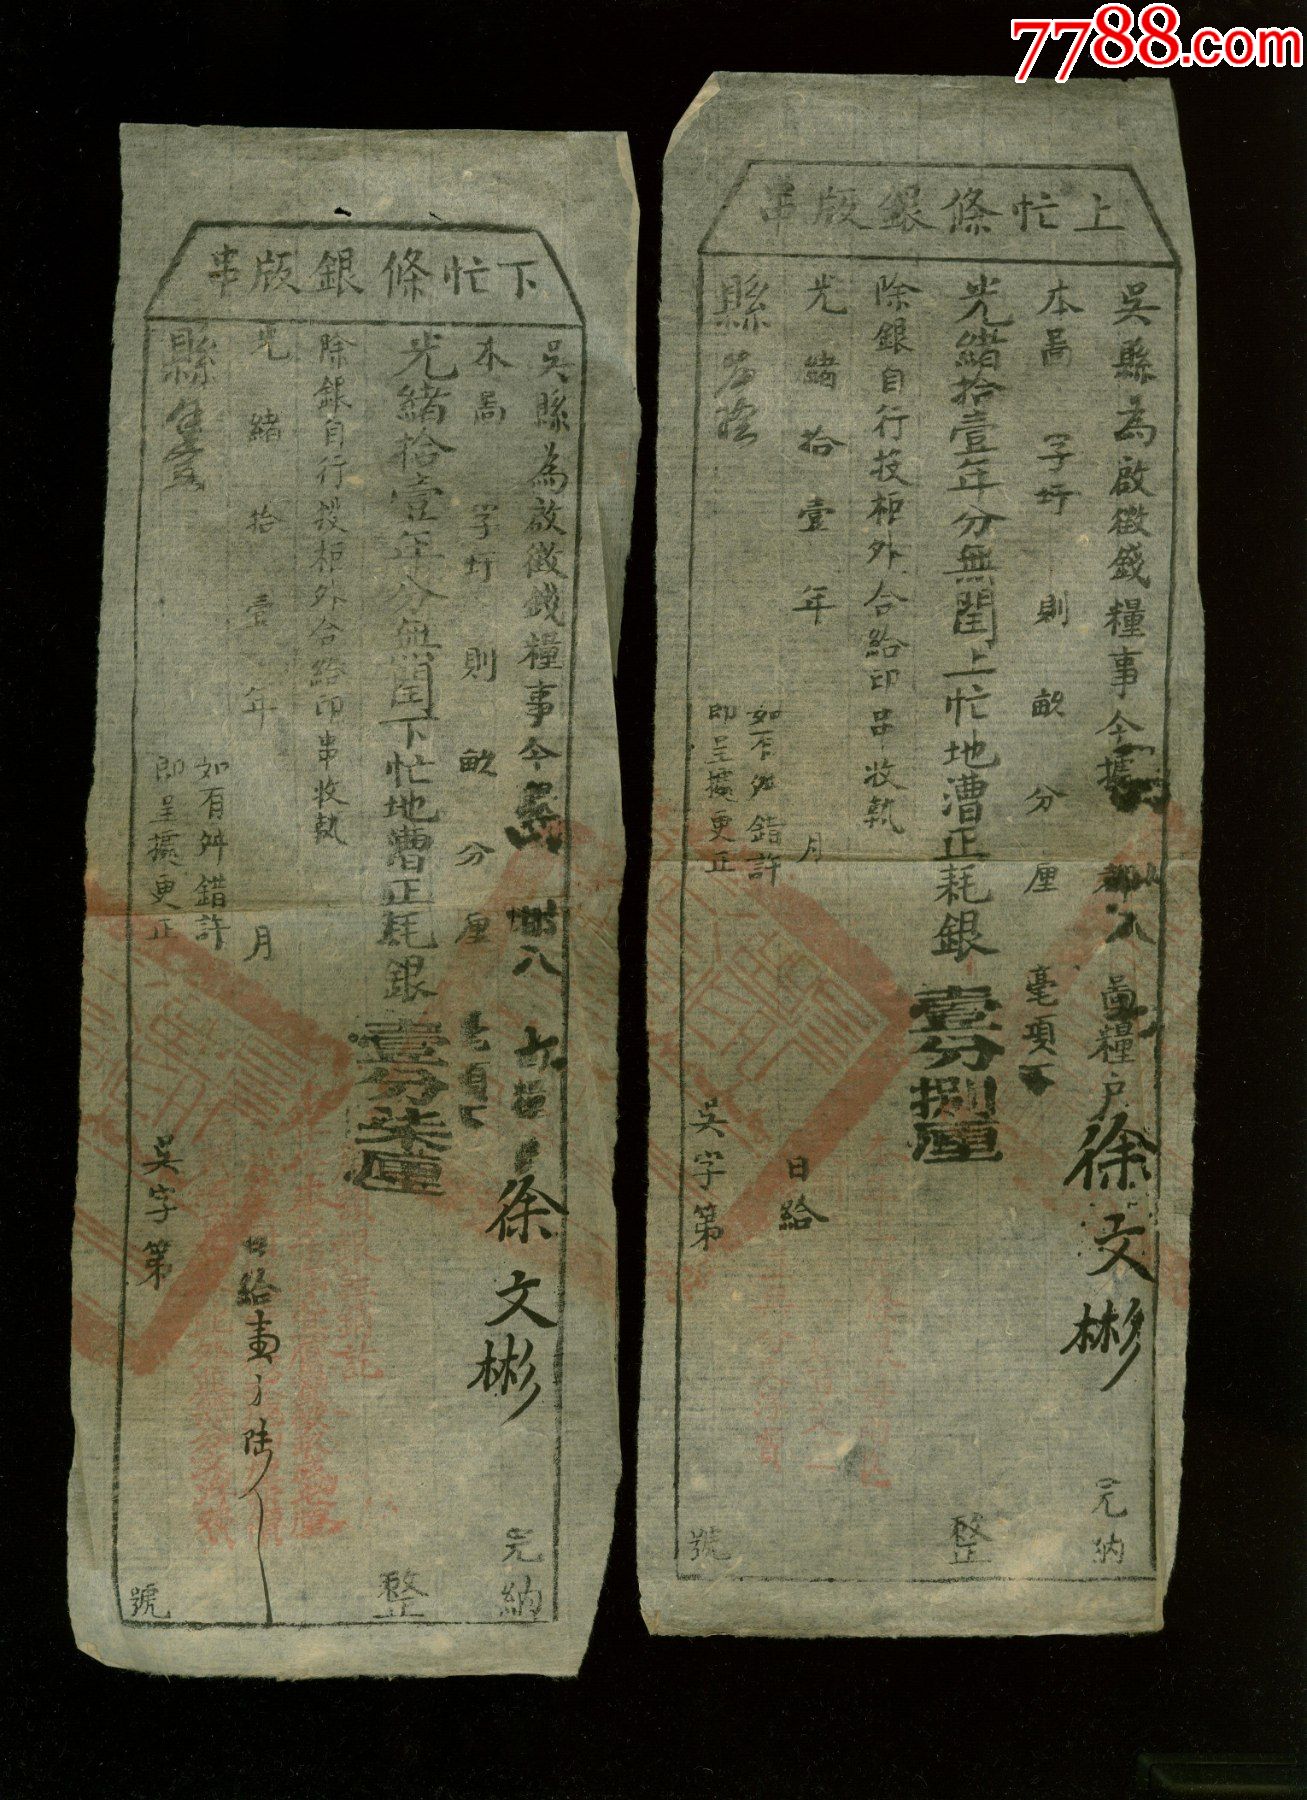 7788.com
上忙條銀版串
吳縣為啟徵錢糧事今據 都 八 啚糧户徐文彬 完納
本啚 字圩 則 畝 分 厘 毫項下
光緒拾壹年分無閏上忙地漕正耗銀壹分捌厘 整
除銀自行投柜外合給印串收執
光緒拾壹年 月 日給
如有舛錯許
即呈據更正
縣
吳字第 號
下忙條銀版串
吳縣為啟徵錢糧事今 八 徐文彬 完納
本啚 字圩 則 畝 分 厘
光緒拾壹年分無閏下忙地漕正耗銀壹分柒厘 整
除銀自行投柜外合給印串收執
光緒拾壹年 月 日給
如有舛錯許
即呈據更正
縣
吳字第 號